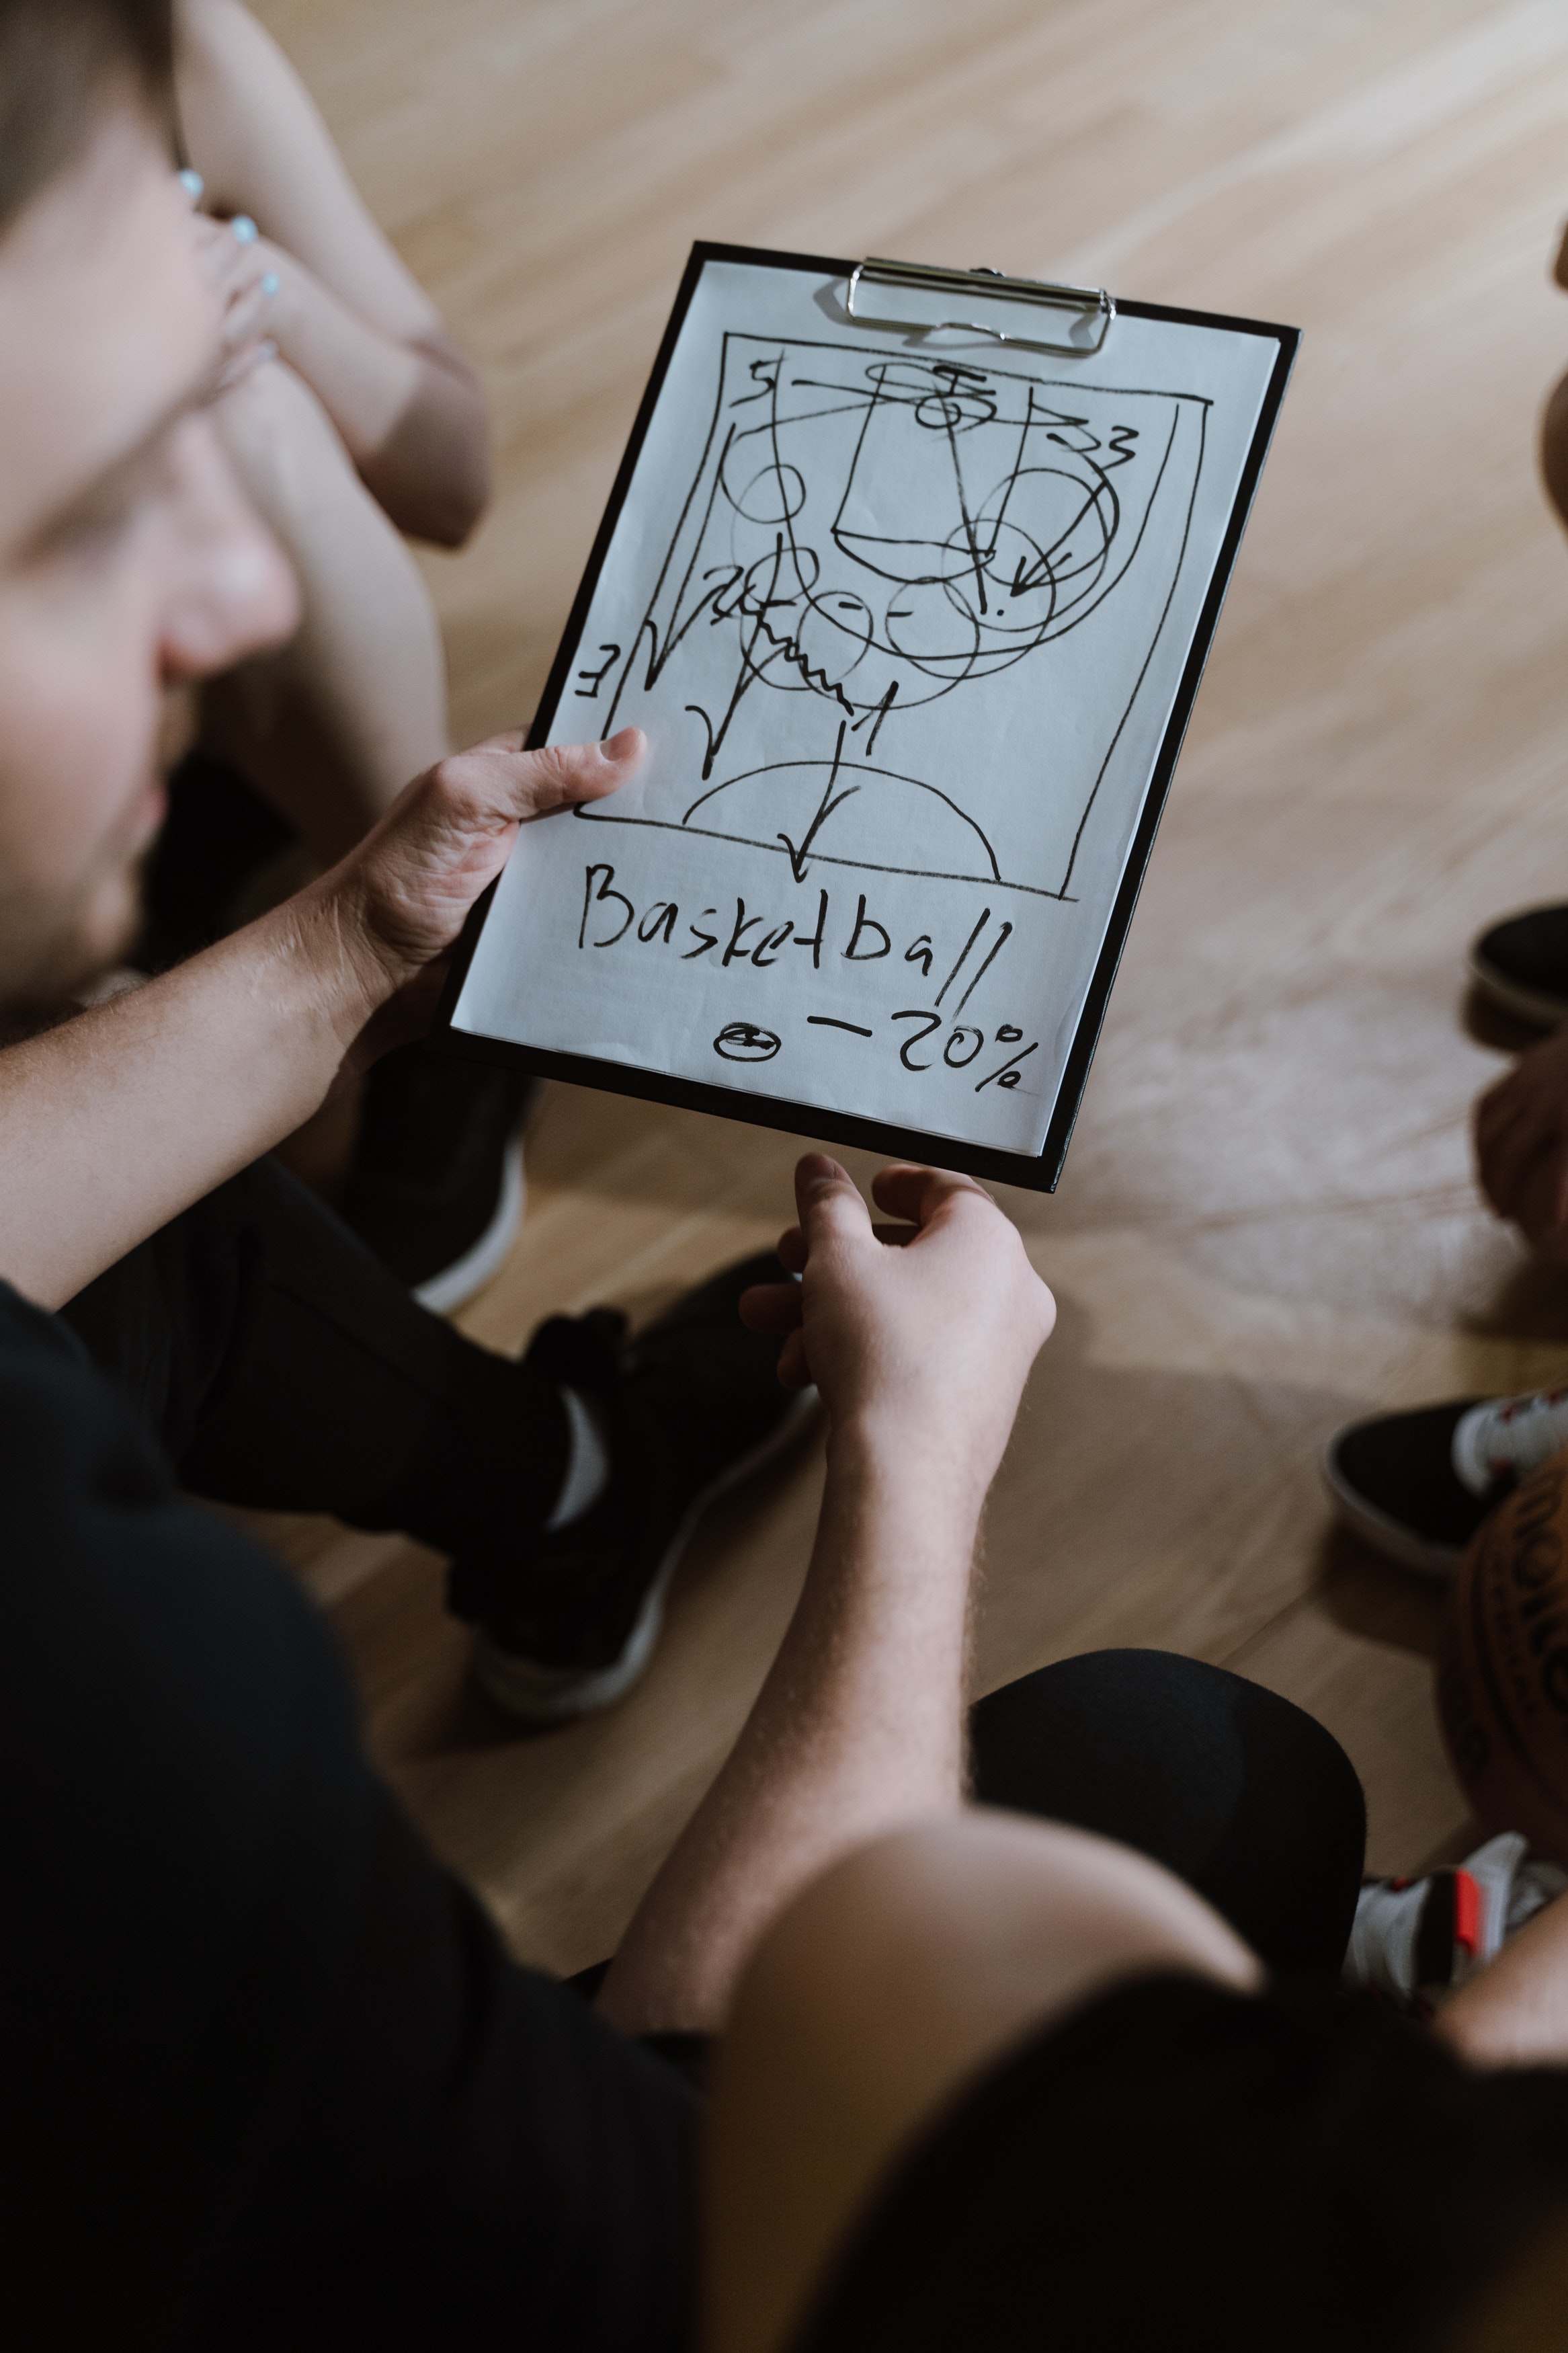 5
33
2
3
1
Basketball
- 20%